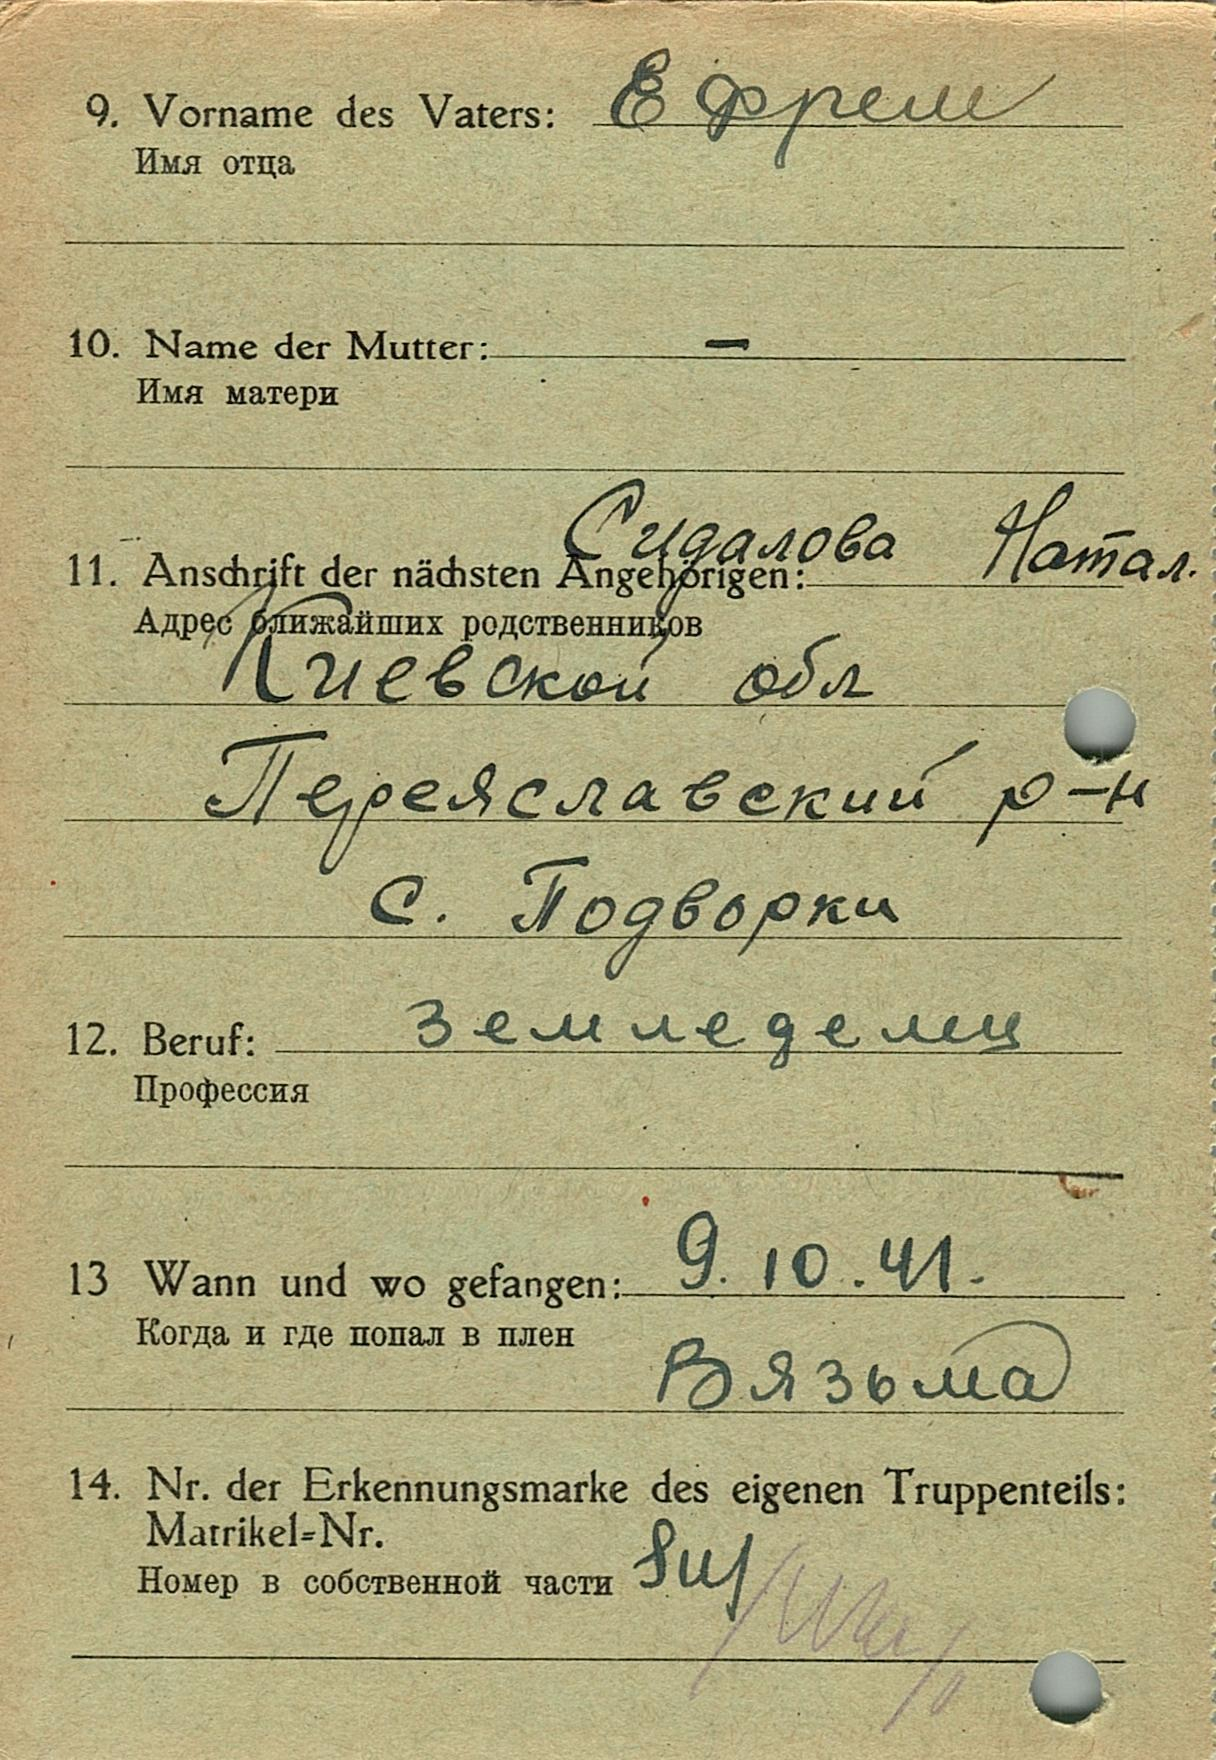 9. Vorname des Vaters: Ефрем
Имя отца
10. Name der Mutter: –
Имя матери
Сидалова Натал.
11. Anschrift der nächsten Angehörigen:
Адрес ближайших родственников
Киевской обл
Переяславский р-н
с. Подворки
12. Beruf: земледелец
Профессия
13 Wann und wo gefangen: 9.10.41.
Когда и где попал в плен
Вязьма
14. Nr. der Erkennungsmarke des eigenen Truppenteils:
Matrikel=Nr.
Номер в собственной части